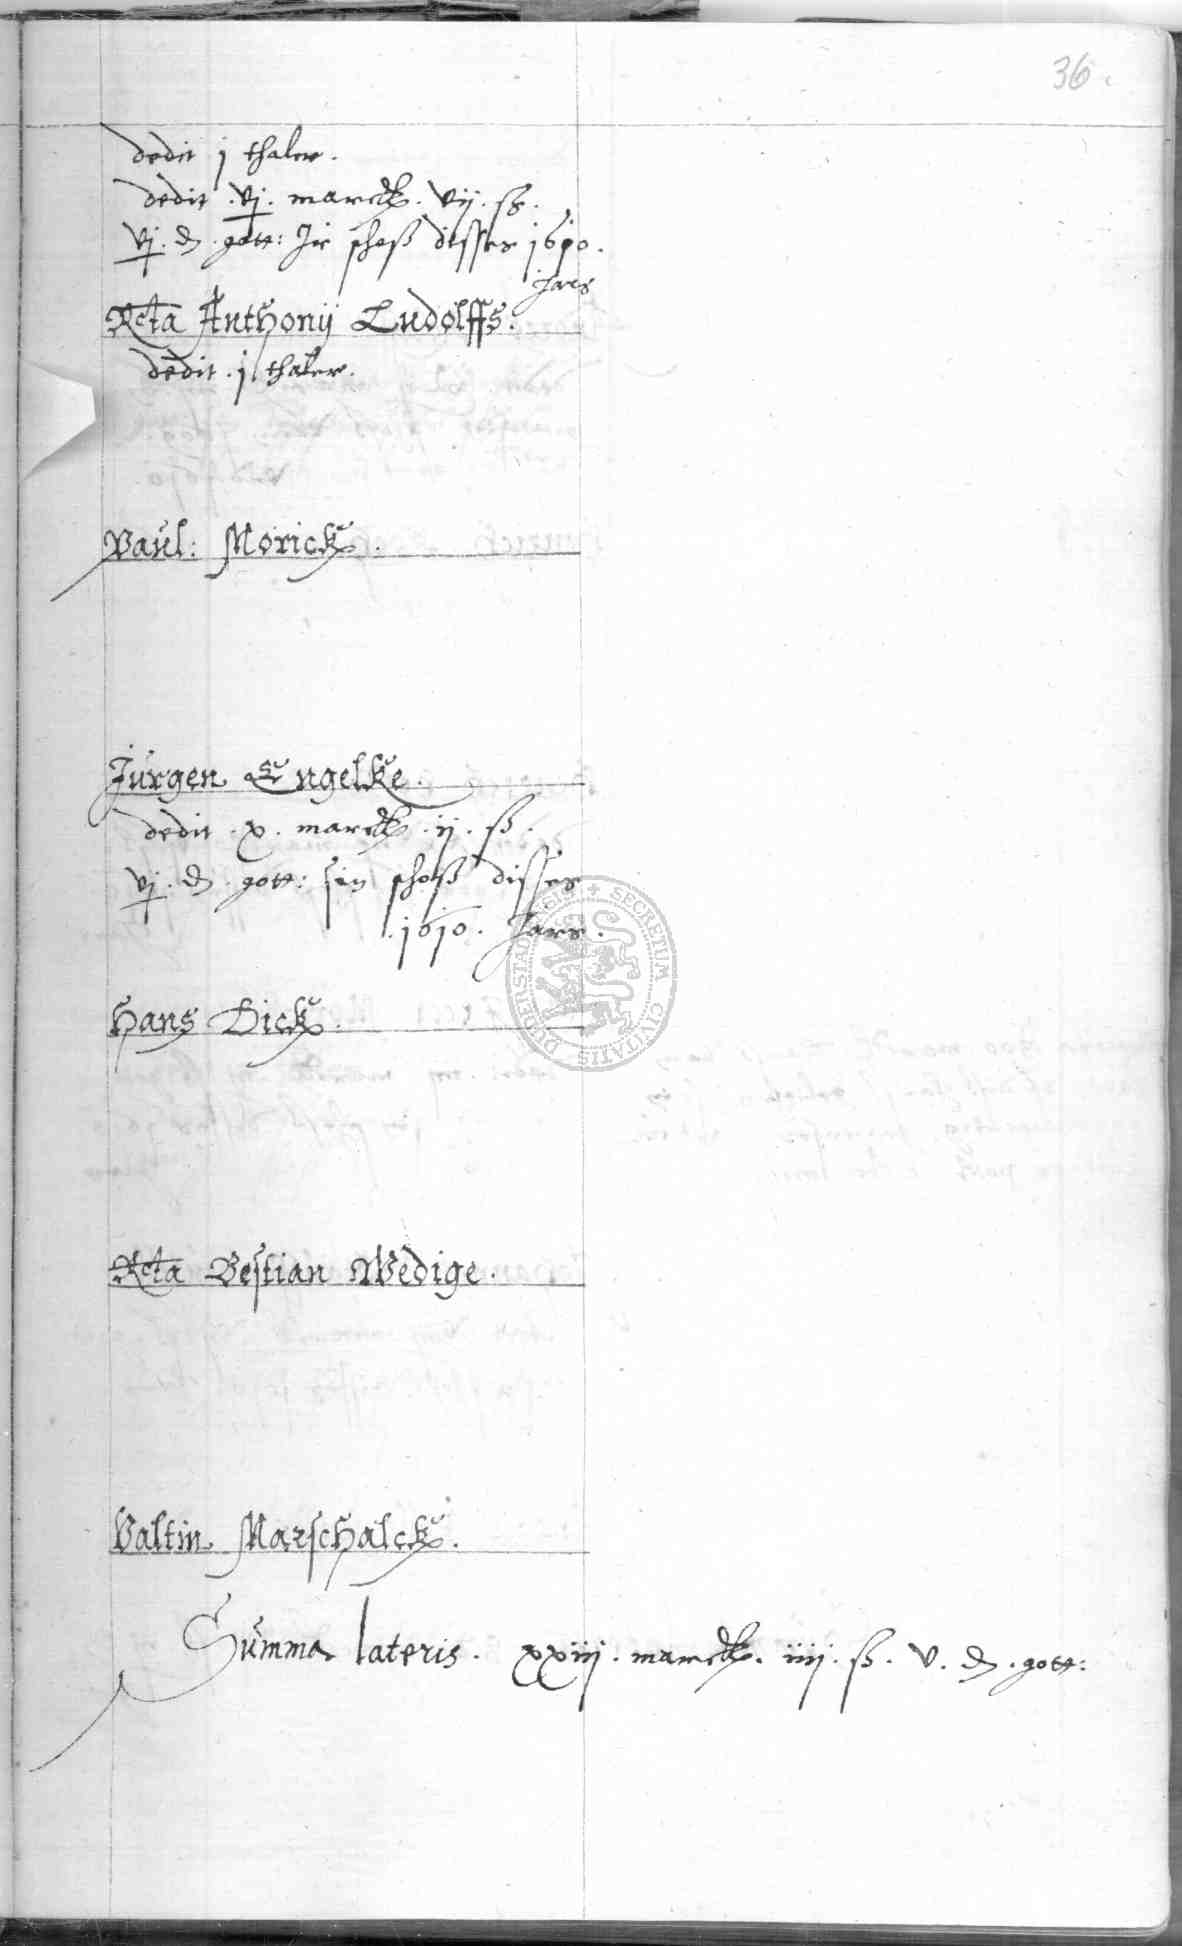 36.
dedit j thaler.
dedit .vj. marck. vij. ß.
vj. ₰. gott: Ir schoß disses 1610.
Jars
Rcta Anthonij Ludolffs.
dedit . j thaler.
Paul: Morick.
Jurgen Engelke.
dedit . x . marck . ij . ß.
vj. ₰. gott: sin schoß disses
.1610. Jars.
Hans Dick.
Rcta Bestian Wedige.
Valtin Marschalck.
Summa lateris . xxiij . marck. iiij . ß . v . ₰ . gott:
SECRETUM CIVITATIS DUDERSTADENSIS